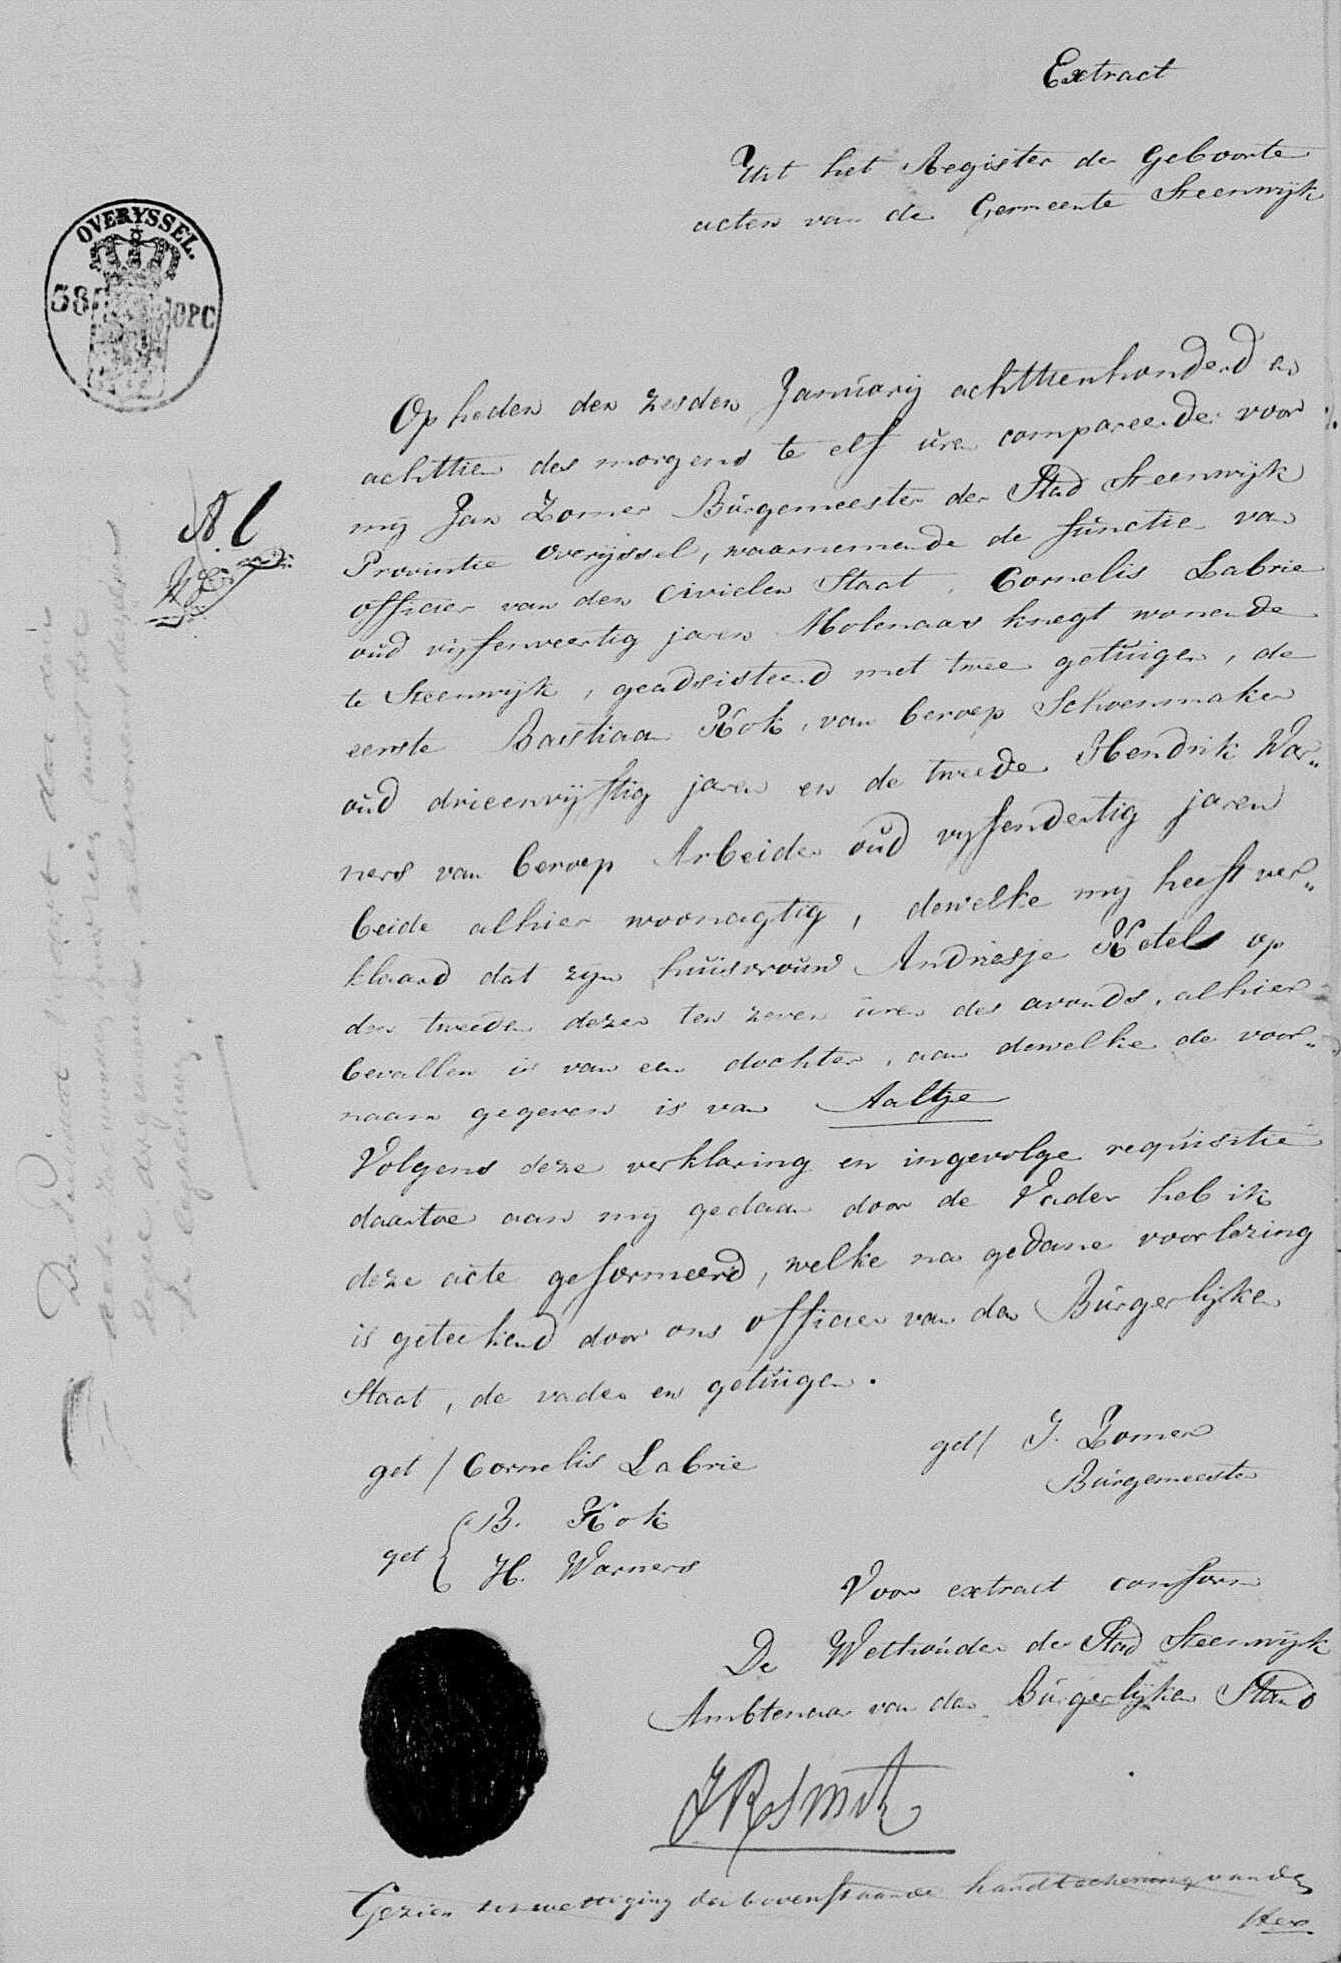 Extract
Uit het Register der Geboorte
acten van de Gemeente Steenwijk
OVERYSSEL.
38 OPC
Op heden den zesden Januarij achttienhonderd en
achttien des morgens te elf uren compareerde voor
mij Jan Zomer Burgemeester der Stad Steenwijk
Provintie Overijssel, waarnemende de functie van
officier van den Civielen Staat, Cornelis Labrie
oud vijfenveertig jaren Molenaars knegt wonende
te Steenwijk, geadsisteerd met twee getuigen, de
eerste Bastiaan Kok, van beroep Schoenmaker
oud drieenvijftig jaren en de tweede Hendrik War„
ners van beroep Arbeider oud vijfendertig jaren
beide alhier woonagtig, dewelke mij heeft ver„
klaard dat zijn huisvrouw Andriesje Ketels op
den tweeden dezer ten zeven uren des avonds, alhier
bevallen is van een dochter, aan dewelke de voor„
naam gegeven is van Aaltje
Volgens deze verklaring en ingevolge requisitie
daartoe aan mij gedaan door de Vader heb ik
deze acte geformeerd, welke na gedane voorlezing
is geteekend door ons officier van den Burgerlijken
Staat, de vader en getuigen.
get / Cornelis Labrie
get / J. Zomer
Burgemeester
get { B. Kok
H. Warners
Voor extract conform
De Wethouder der Stad Steenwijk
Ambtenaar van den Burgerlijken Stand
JRSmit
Gezien ter wettiging der bovenstaande handteekening van den
Heer